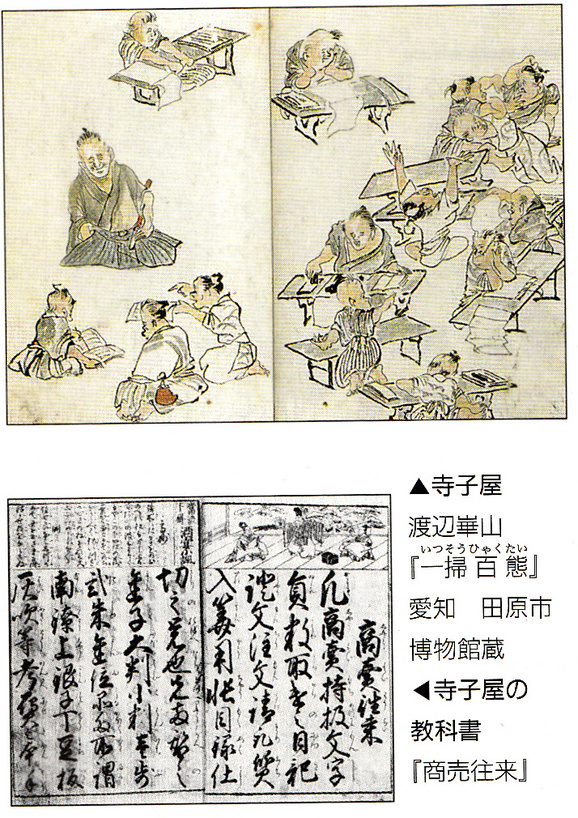 ▲寺子屋
渡辺崋山
いつそうひゃくたい
『一掃百態』
愛知　田原市
博物館蔵
◀寺子屋の
教科書
『商売往来』
商賣往来
凡商賣持扱文字
員数取遣之日記
證文注文請取質
入算用帳目録仕
切之覚也先両替之
金子大判小判壹歩
弐朱金位品多所謂
南鐐上銀子丁豆板
灰吹等考贋与本手